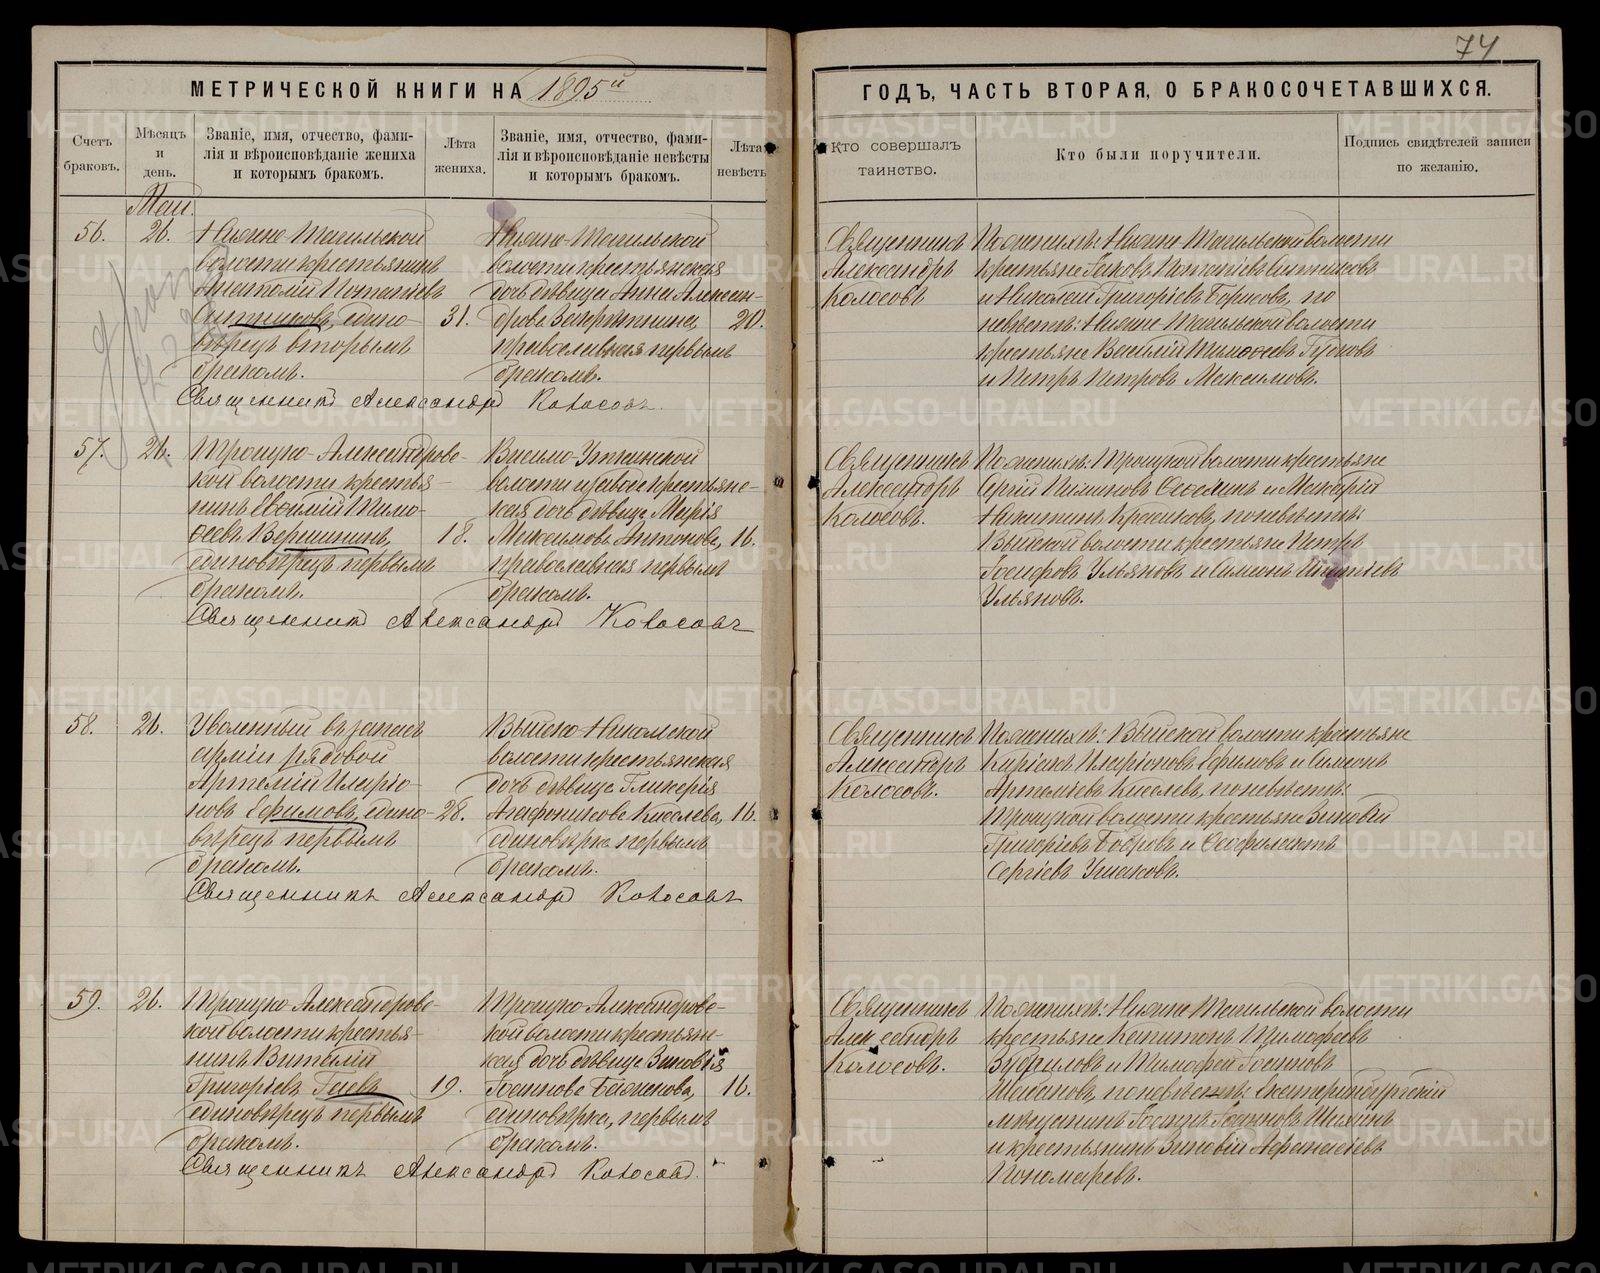 74
МЕТРИЧЕСКОЙ КНИГИ НА 1895й
ГОДЪ, ЧАСТЬ ВТОРАЯ, О БРАКОСОЧЕТАВШИХСЯ.
Счетъ браковъ.
Мѣсяцъ и день.
Званіе, имя, отчество, фами-
лія и вѣроисповѣданіе жениха
и которымъ бракомъ.
Лѣта жениха.
Званіе, имя, отчество, фами-
лія и вѣроисповѣданіе невѣсты
и которымъ бракомъ.
Лѣта невѣсты
Кто совершалъ
таинство.
Кто были поручители.
Подпись свидѣтелей записи
по желанію.
Маи.
56.
26.
Нижне-Тагильской
волости крестьянинъ
Анатолій Потапіевъ
едино-
вѣрецъ вторымъ
бракомъ.
31.
Нижне-Тагильской
волости крестьянская
дочь дѣвица Анна Алексан-
дрова
православная первымъ
бракомъ.
20.
Священникъ Александръ Колосовъ.
Священникъ
Александръ
Колосовъ
По женихѣ: Нижне Тагильской волости
крестьяне Іаковъ Потапіевъ
и Николай Григоріевъ Борисовъ, по
невѣстѣ: Нижне-Тагильской волости
крестьяне Василій Тимоѳеевъ Губковъ
и Петръ Петровъ Максимовъ.
57.
26.
Троицко-Александровс-
кой волости крестья-
нинъ Евѳимій Тимо-
ѳеевъ Верешининъ,
единовѣрецъ первымъ
бракомъ.
18.
Висимо-Уткинской
волости и завода крестьянс-
кая дочь дѣвица Марія
Максимовъ Антонова,
православная первымъ
бракомъ.
16.
Священникъ Александръ Колосовъ
Священникъ
Александръ
Колосовъ.
По женихѣ: Троицкой волости крестьяне
Сергій Пименовъ и Макарій
Никитинъ Красиковъ, по невѣстѣ:
Выйской волости крестьяне Петръ
Іосифовъ Ульяновъ и Симеонъ Игнатіевъ
Ульяновъ.
58.
26.
Уволенный въ запасъ
арміи рядовой
Артемій Иларіо-
новъ Ефимовъ, едино-
вѣрецъ первымъ
бракомъ.
28.
Выйско-Никольской
волости крестьянская
дочь дѣвица Гликерія
Агафоникова Киселева,
единовѣрка первымъ
бракомъ.
16.
Священникъ Александръ Колосовъ
Священникъ
Александръ
Колосовъ.
По женихѣ: Выйской волости крестьяне
Киріакъ Иларіоновъ Ефимовъ и Симеонъ
Артеміевъ Киселевъ, по невѣстѣ:
Троицкой волости крестьяне Зиновій
Григоріевъ Бобровъ и Ѳеофилактъ
Сергіевъ Ушаковъ.
59.
26.
Троицко Александровс-
кой волости крестья-
нинъ Виталій
Григоріевъ Гаевъ
единовѣрецъ первымъ
бракомъ.
19.
Троицко Александровс-
кой волости крестьян-
ская дочь дѣвица Зиновія
Іоаннова Баженова,
единовѣрка, первымъ
бракомъ.
16.
Священникъ Александръ Колосовъ.
Священникъ
Александръ
Колосовъ.
По женихѣ: Нижне Тагильской волости
крестьяне Капитонъ Тимофеевъ
Зубриловъ и Тимофей Іоанновъ
Шабановъ, по невѣстѣ: Екатеринбургскій
мѣщанинъ Іоаннъ Іоанновъ Шихинъ
и крестьянинъ Зиновій Афанасіевъ
Пономаревъ.
METRIKI.GASO-URAL.RU